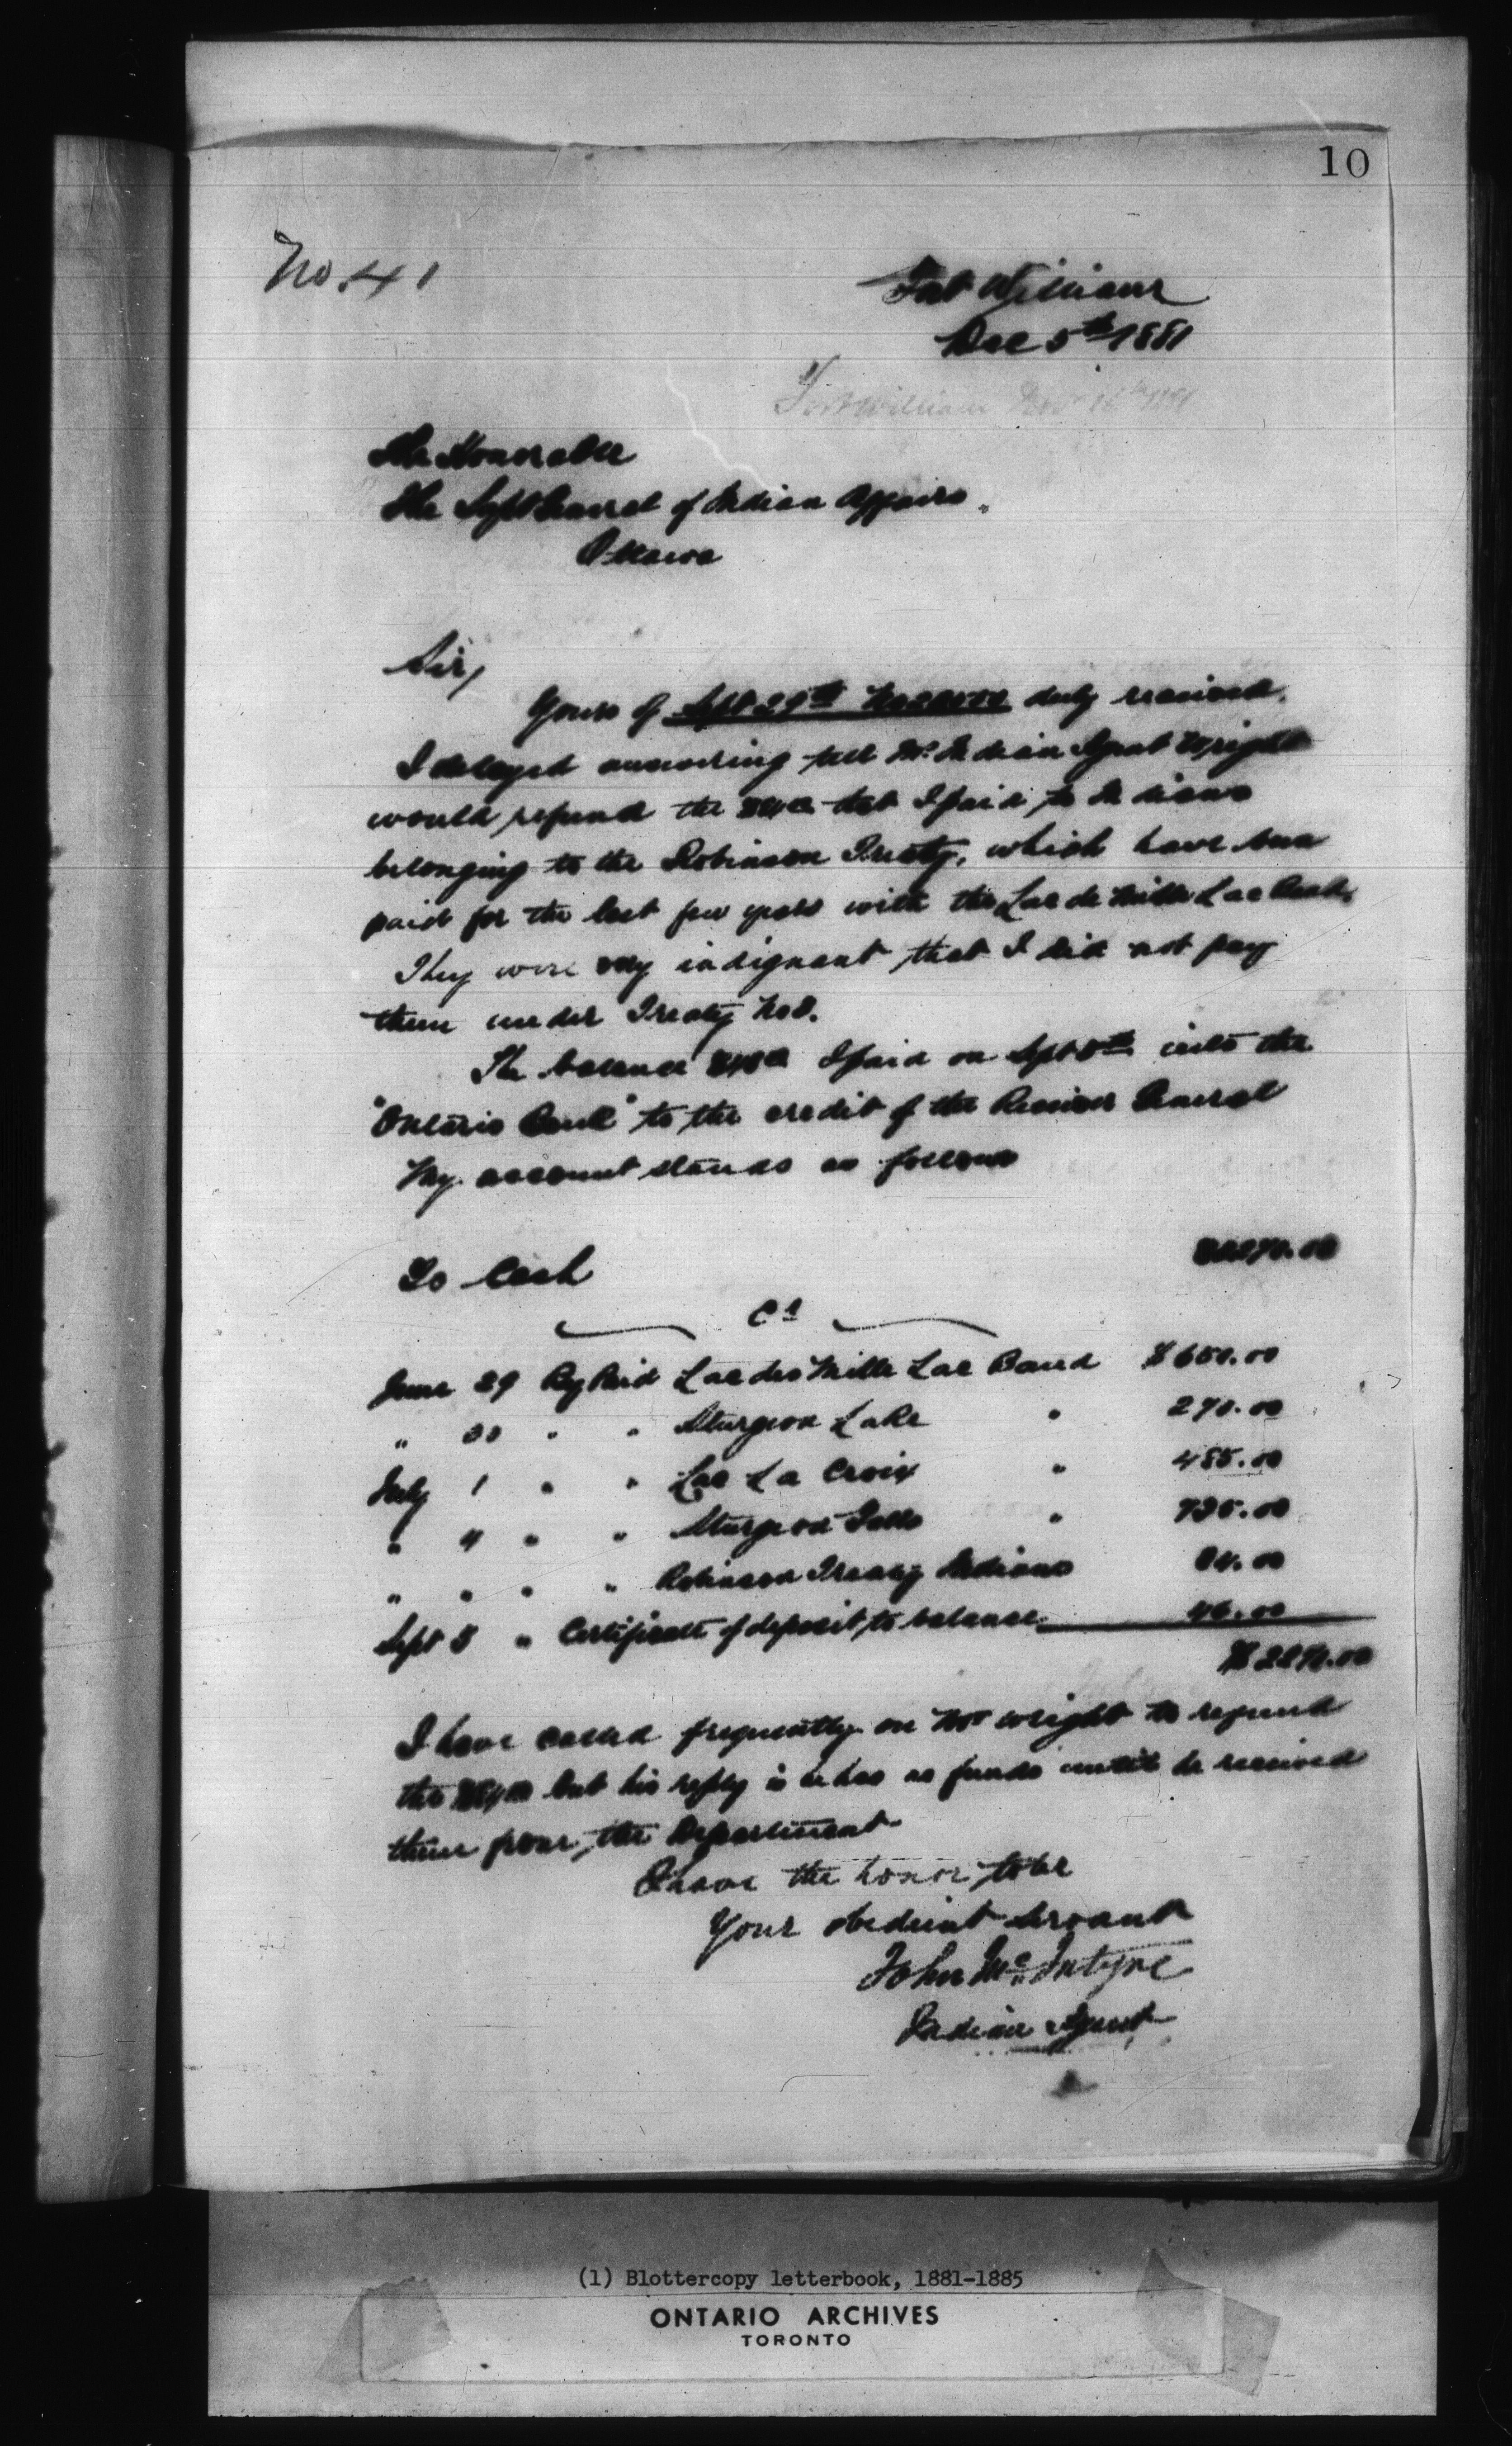 10
No. 41
Fort William
Dec 5th 1881
Fort William Nov 16th 1881
The Honorable
The Supt General of Indian Affairs.
Ottawa
Sir,
Yours of Sept 29th duly received.
I delayed answering till Mr. Indian Agent Wright
would refund the that I paid to Indians
belonging to the Robinson Treaty, which have been
paid for the last few years with the Lac de Mille Lac Band.
They were very indignant that I did not pay
them under Treaty No 3.
The balance I paid on Sept 5th into the
"Ontario Bank" to the credit of the Receiver General
My account stands as follows
To Cash $2270.00
Cr
June 29 By Paid Lac des Mille Lac Band $650.00
" 30 " " Sturgeon Lake " 270.00
July 1 " " Lac La Croix " 485.00
" 4 " " Sturgeon Falls " 735.00
" " " " Robinson Treaty Indians 84.00
Sept 5 " Certificate of deposit to balance 46.00
$2270.00
I have called frequently on Mr Wright to refund
the but his reply is he has no funds until he received
them from the Department
I have the honor to be
Your obedient Servant
John McIntyre
Indian Agent
(1) Blottercopy letterbook, 1881-1885
ONTARIO ARCHIVES
TORONTO